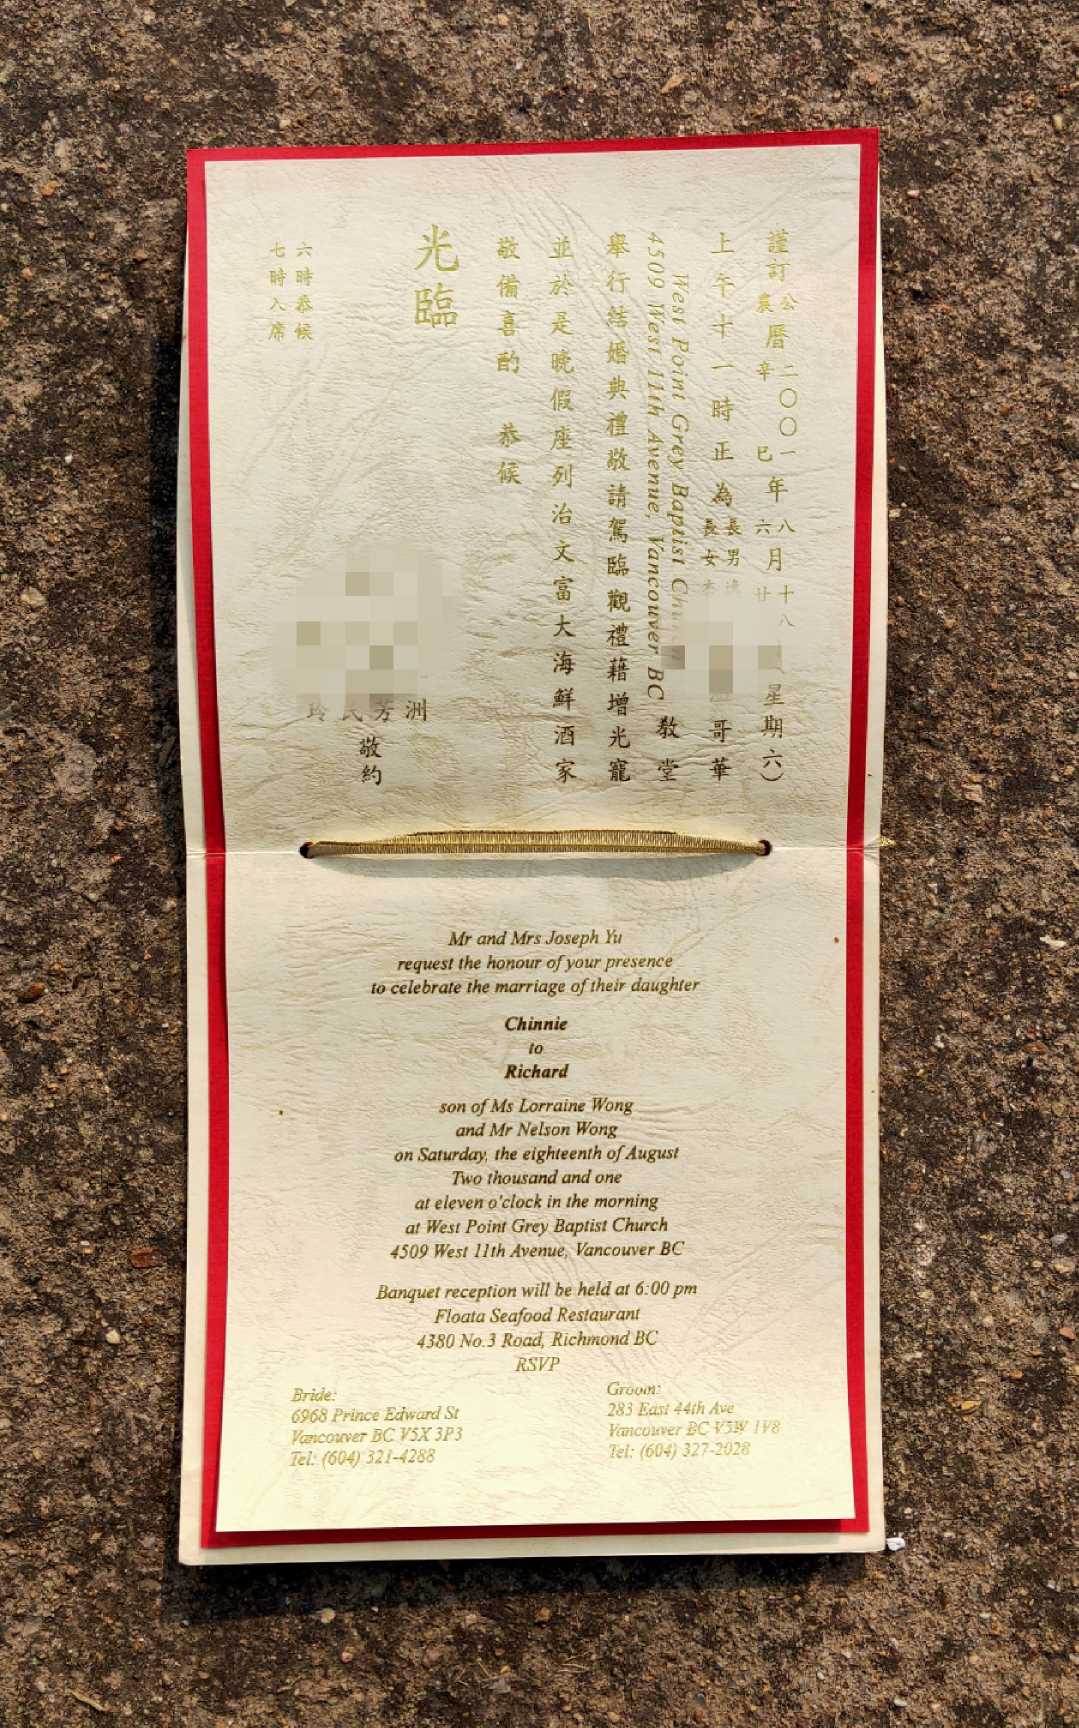 謹訂公農曆二〇〇一辛巳年八六月十八廿星期六）
上午十一時正為長男長女哥華
West Point Grey Baptist
4509 West 11th Avenue, Vancouver BC 教堂
舉行結婚典禮敬請駕臨觀禮藉增光寵
並於是晚假座列治文富大海鮮酒家
敬備喜酌 恭候
光臨
洲
芳
民
玲
敬約
六時恭候
七時入席
Mr and Mrs Joseph Yu
request the honour of your presence
to celebrate the marriage of their daughter
Chinnie
to
Richard
son of Ms Lorraine Wong
and Mr Nelson Wong
on Saturday, the eighteenth of August
Two thousand and one
at eleven o'clock in the morning
at West Point Grey Baptist Church
4509 West 11th Avenue, Vancouver BC
Banquet reception will be held at 6:00 pm
Floata Seafood Restaurant
4380 No.3 Road, Richmond BC
RSVP
Bride:
6968 Prince Edward St
Vancouver BC V5X 3P3
Tel: (604) 321-4288
Groom:
283 East 44th Ave
Vancouver BC V5W 1V8
Tel: (604) 327-2028